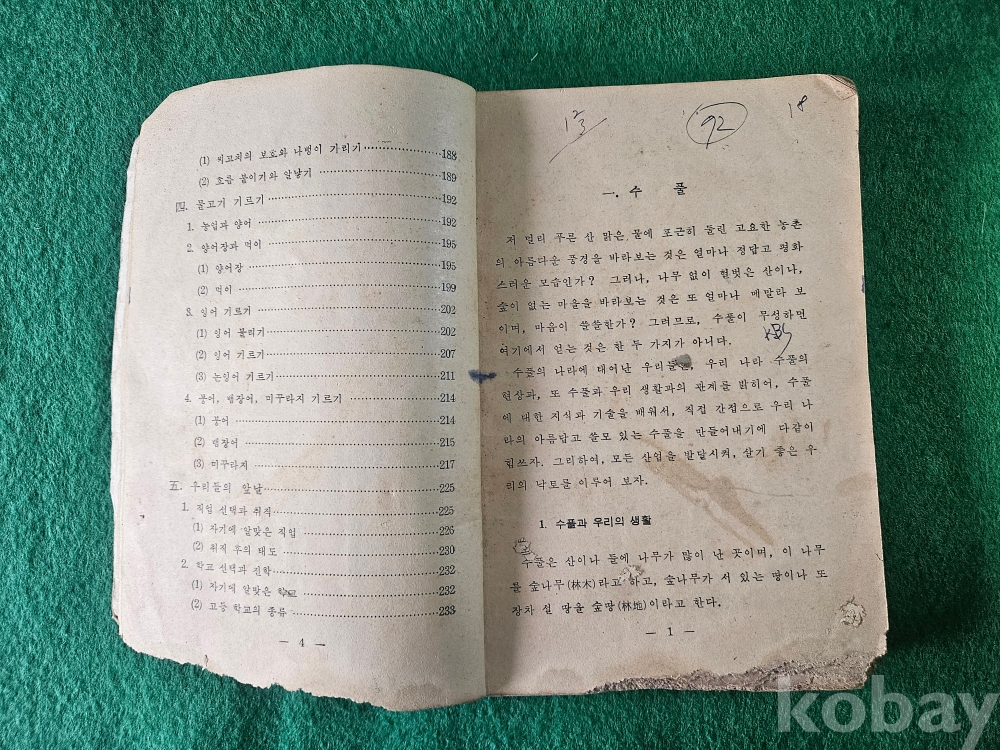 (1) 씨고치의 보호와 나방이 가리기 188
(2) 흐름 붙이기와 알낳기 189
四. 물고기 기르기 192
1. 농업과 양어 192
2. 양어장과 먹이 195
(1) 양어장 195
(2) 먹이 199
3. 잉어 기르기 202
(1) 잉어 불리기 202
(2) 잉어 기르기 207
(3) 논잉어 기르기 211
4. 붕어, 뱀장어, 미꾸라지 기르기 214
(1) 붕어 214
(2) 뱀장어 215
(3) 미꾸라지 217
五. 우리들의 앞날 225
1. 직업 선택과 취직 225
(1) 자기에 알맞은 직업 226
(2) 취직 후의 태도 230
2. 학교 선택과 진학 232
(1) 자기에 알맞은 학교 232
(2) 고등 학교의 종류 233
— 4 —
92
18
一. 수 풀
저 멀리 푸른 산 맑은 물에 포근히 둘린 고요한 농촌
의 아름다운 풍경을 바라보는 것은 얼마나 정답고 평화
스러운 모습인가? 그러나, 나무 없이 헐벗은 산이나,
숲이 없는 마을을 바라보는 것은 또 얼마나 메말라 보
이며, 마음이 쓸쓸한가? 그러므로, 수풀이 무성하면
여기에서 얻는 것은 한 두 가지가 아니다.
수풀의 나라에 태어난 우리들은, 우리 나라 수풀의
현상과, 또 수풀과 우리 생활과의 관계를 밝히어, 수풀
에 대한 지식과 기술을 배워서, 직접 간접으로 우리 나
라의 아름답고 쓸모 있는 수풀을 만들어내기에 다같이
힘쓰자. 그리하여, 모든 산업을 발달시켜, 살기 좋은 우
리의 낙토를 이루어 보자.
1. 수풀과 우리의 생활
수풀은 산이나 들에 나무가 많이 난 곳이며, 이 나무
를 숲나무(林木)라고 하고, 숲나무가 서 있는 땅이나 또
장차 설 땅을 숲땅(林地)이라고 한다.
— 1 —
kobay